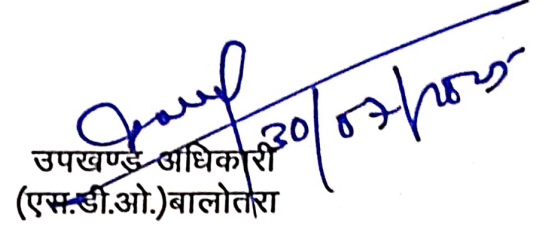 30/07/2025
उपखण्ड अधिकारी
(एस.डी.ओ.)बालोतरा